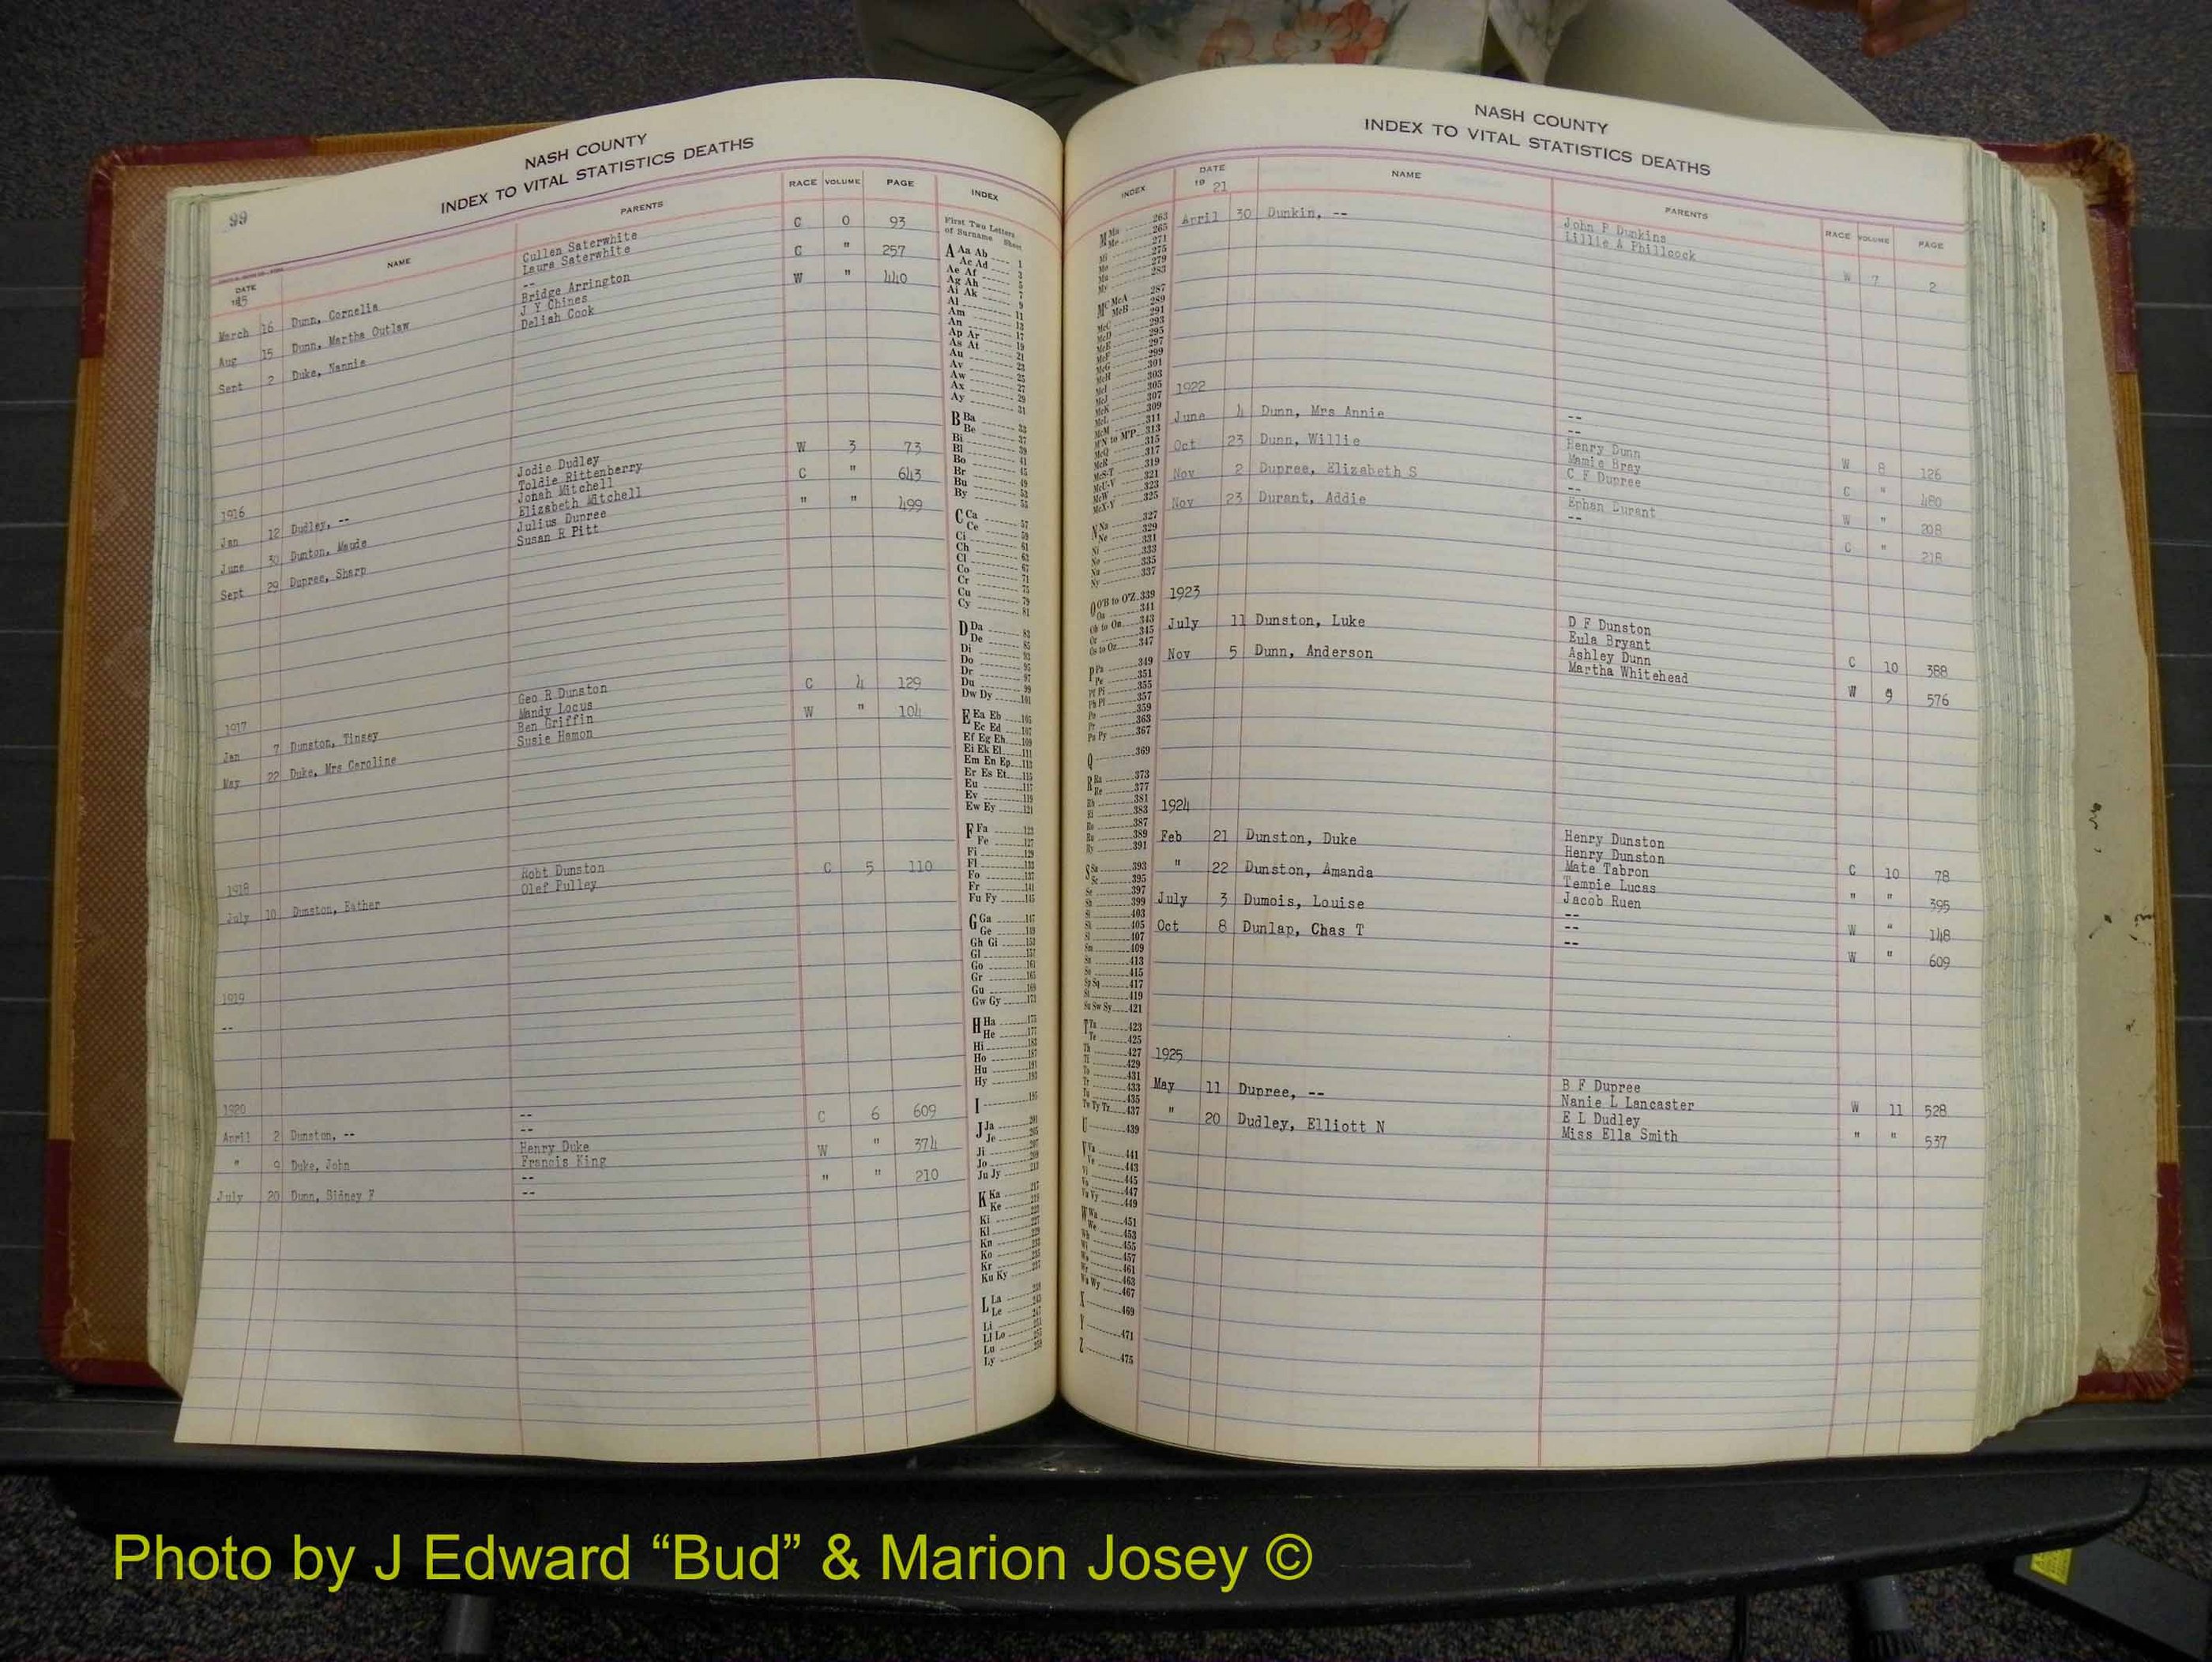 99
NASH COUNTY
INDEX TO VITAL STATISTICS DEATHS
DATE NAME PARENTS RACE VOLUME PAGE INDEX
1915
March 16 Dunn, Cornelia Cullen Saterwhite C 0 93
Laura Saterwhite
Aug 15 Dunn, Martha Outlaw -- C " 257
Bridge Arrington
Sept 2 Duke, Nannie J Y Chines W " 440
Deliah Cook
1916
Jan 12 Dudley, -- Jodie Dudley W 3 73
Toldie Rittenberry
June 30 Dunton, Maude Jonah Mitchell C " 643
Elizabeth Mitchell
Sept 29 Dupree, Sharp Julius Dupree " " 499
Susan R Pitt
1917
Jan 7 Dunston, Tinsey Geo R Dunston C 4 129
Mandy Locus
May 22 Duke, Mrs Caroline Ben Griffin W " 104
Susie Hamon
1918
July 10 Dunston, Eather Robt Dunston C 5 110
Olef Pulley
1919
--
1920
April 2 Dunston, -- -- C 6 609
--
" 9 Duke, John Henry Duke W " 374
Francis King
July 20 Dunn, Sidney F -- " " 210
--
First Two Letters
of Surname Sheet
A Aa Ab 1
Ac Ad 3
Ae Af 5
Ag Ah 7
Ai Ak 9
Al 11
Am 13
An 17
Ap Ar 19
As At 21
Au 23
Av 25
Aw 27
Ax 29
Ay 31
B Ba 33
Be 37
Bi 39
Bl 41
Bo 45
Br 49
Bu 53
By 55
C Ca 57
Ce 59
Ci 61
Ch 63
Cl 67
Co 71
Cr 75
Cu 79
Cy 81
D Da 83
De 85
Di 93
Do 95
Dr 97
Du 99
Dw Dy 101
E Ea Eb 105
Ec Ed 107
Ef Eg Eh 109
Ei Ek El 111
Em En Ep 113
Er Es Et 115
Eu 117
Ev 119
Ew Ey 121
F Fa 123
Fe 127
Fi 129
Fl 133
Fo 137
Fr 141
Fu Fy 145
G Ga 147
Ge 149
Gh Gi 153
Gl 157
Go 161
Gr 165
Gu 169
Gw Gy 173
H Ha 175
He 177
Hi
Ho
Hu
Hy
I 195
J Ja
Je
Ji
Jo
Ju Jy
K Ka
Ke
Ki
Kl
Kn
Ko
Kr
Ku Ky
L La
Le
Li
Ll Lo
Lu
Ly
NASH COUNTY
INDEX TO VITAL STATISTICS DEATHS
INDEX DATE NAME PARENTS RACE VOLUME PAGE
1921
April 30 Dunkin, -- John P Dunkins W 7 2
Lillie A Phillcock
1922
June 4 Dunn, Mrs Annie -- W 8 126
--
Oct 23 Dunn, Willie Henry Dunn C " 480
Mamie Bray
Nov 2 Dupree, Elizabeth S C F Dupree W " 208
--
Nov 23 Durant, Addie Ephan Durant C " 218
--
1923
July 11 Dunston, Luke D F Dunston C 10 388
Eula Bryant
Nov 5 Dunn, Anderson Ashley Dunn W 9 576
Martha Whitehead
1924
Feb 21 Dunston, Duke Henry Dunston C 10 78
Henry Dunston
" 22 Dunston, Amanda Mate Tabron " " 395
Tempie Lucas
July 3 Dumois, Louise Jacob Ruen W " 148
--
Oct 8 Dunlap, Chas T -- W " 609
--
1925
May 11 Dupree, -- B F Dupree W 11 528
Nanie L Lancaster
" 20 Dudley, Elliott N E L Dudley " " 537
Miss Ella Smith
M Ma 263
Me 265
Mi 271
Mo 275
Mu 279
My 283
Mc McA 287
McB 289
McC 291
McD 293
McE 295
McF 297
McG 299
McH 301
McI 303
McJ 305
McK 307
McL 309
McM 311
M'N to M'P 313
McQ 315
McR 317
McS-T 319
McU-V 321
McW 323
McX-Y 325
N Na 327
Ne 329
Ni 331
No 333
Nu 335
Ny 337
O O'B to O'Z 339
Oa 341
Ob to On 343
Or 345
Os to Oz 347
P Pa 349
Pe 351
Pf Pi 355
Ph Pl 357
Po 359
Pr 363
Pu Py 367
Q 369
R Ra 373
Re 377
Rh 381
Ri 383
Ro 387
Ru 389
Ry 391
S Sa 393
Sc 395
397
399
403
405
407
409
413
415
Sp Sq 417
St 419
Su Sw Sy 421
T Ta 423
Te 425
Th 427
Ti 429
To 431
Tr 433
Tu 435
Tw Ty Tz 437
U 439
V Va 441
Ve 443
Vi 445
Vo 447
Vu Vy 449
W Wa 451
We 453
Wh 455
Wi 457
Wo 461
Wr 463
Wu Wy 467
X 469
Y 471
Z 475
Photo by J Edward “Bud” & Marion Josey ©